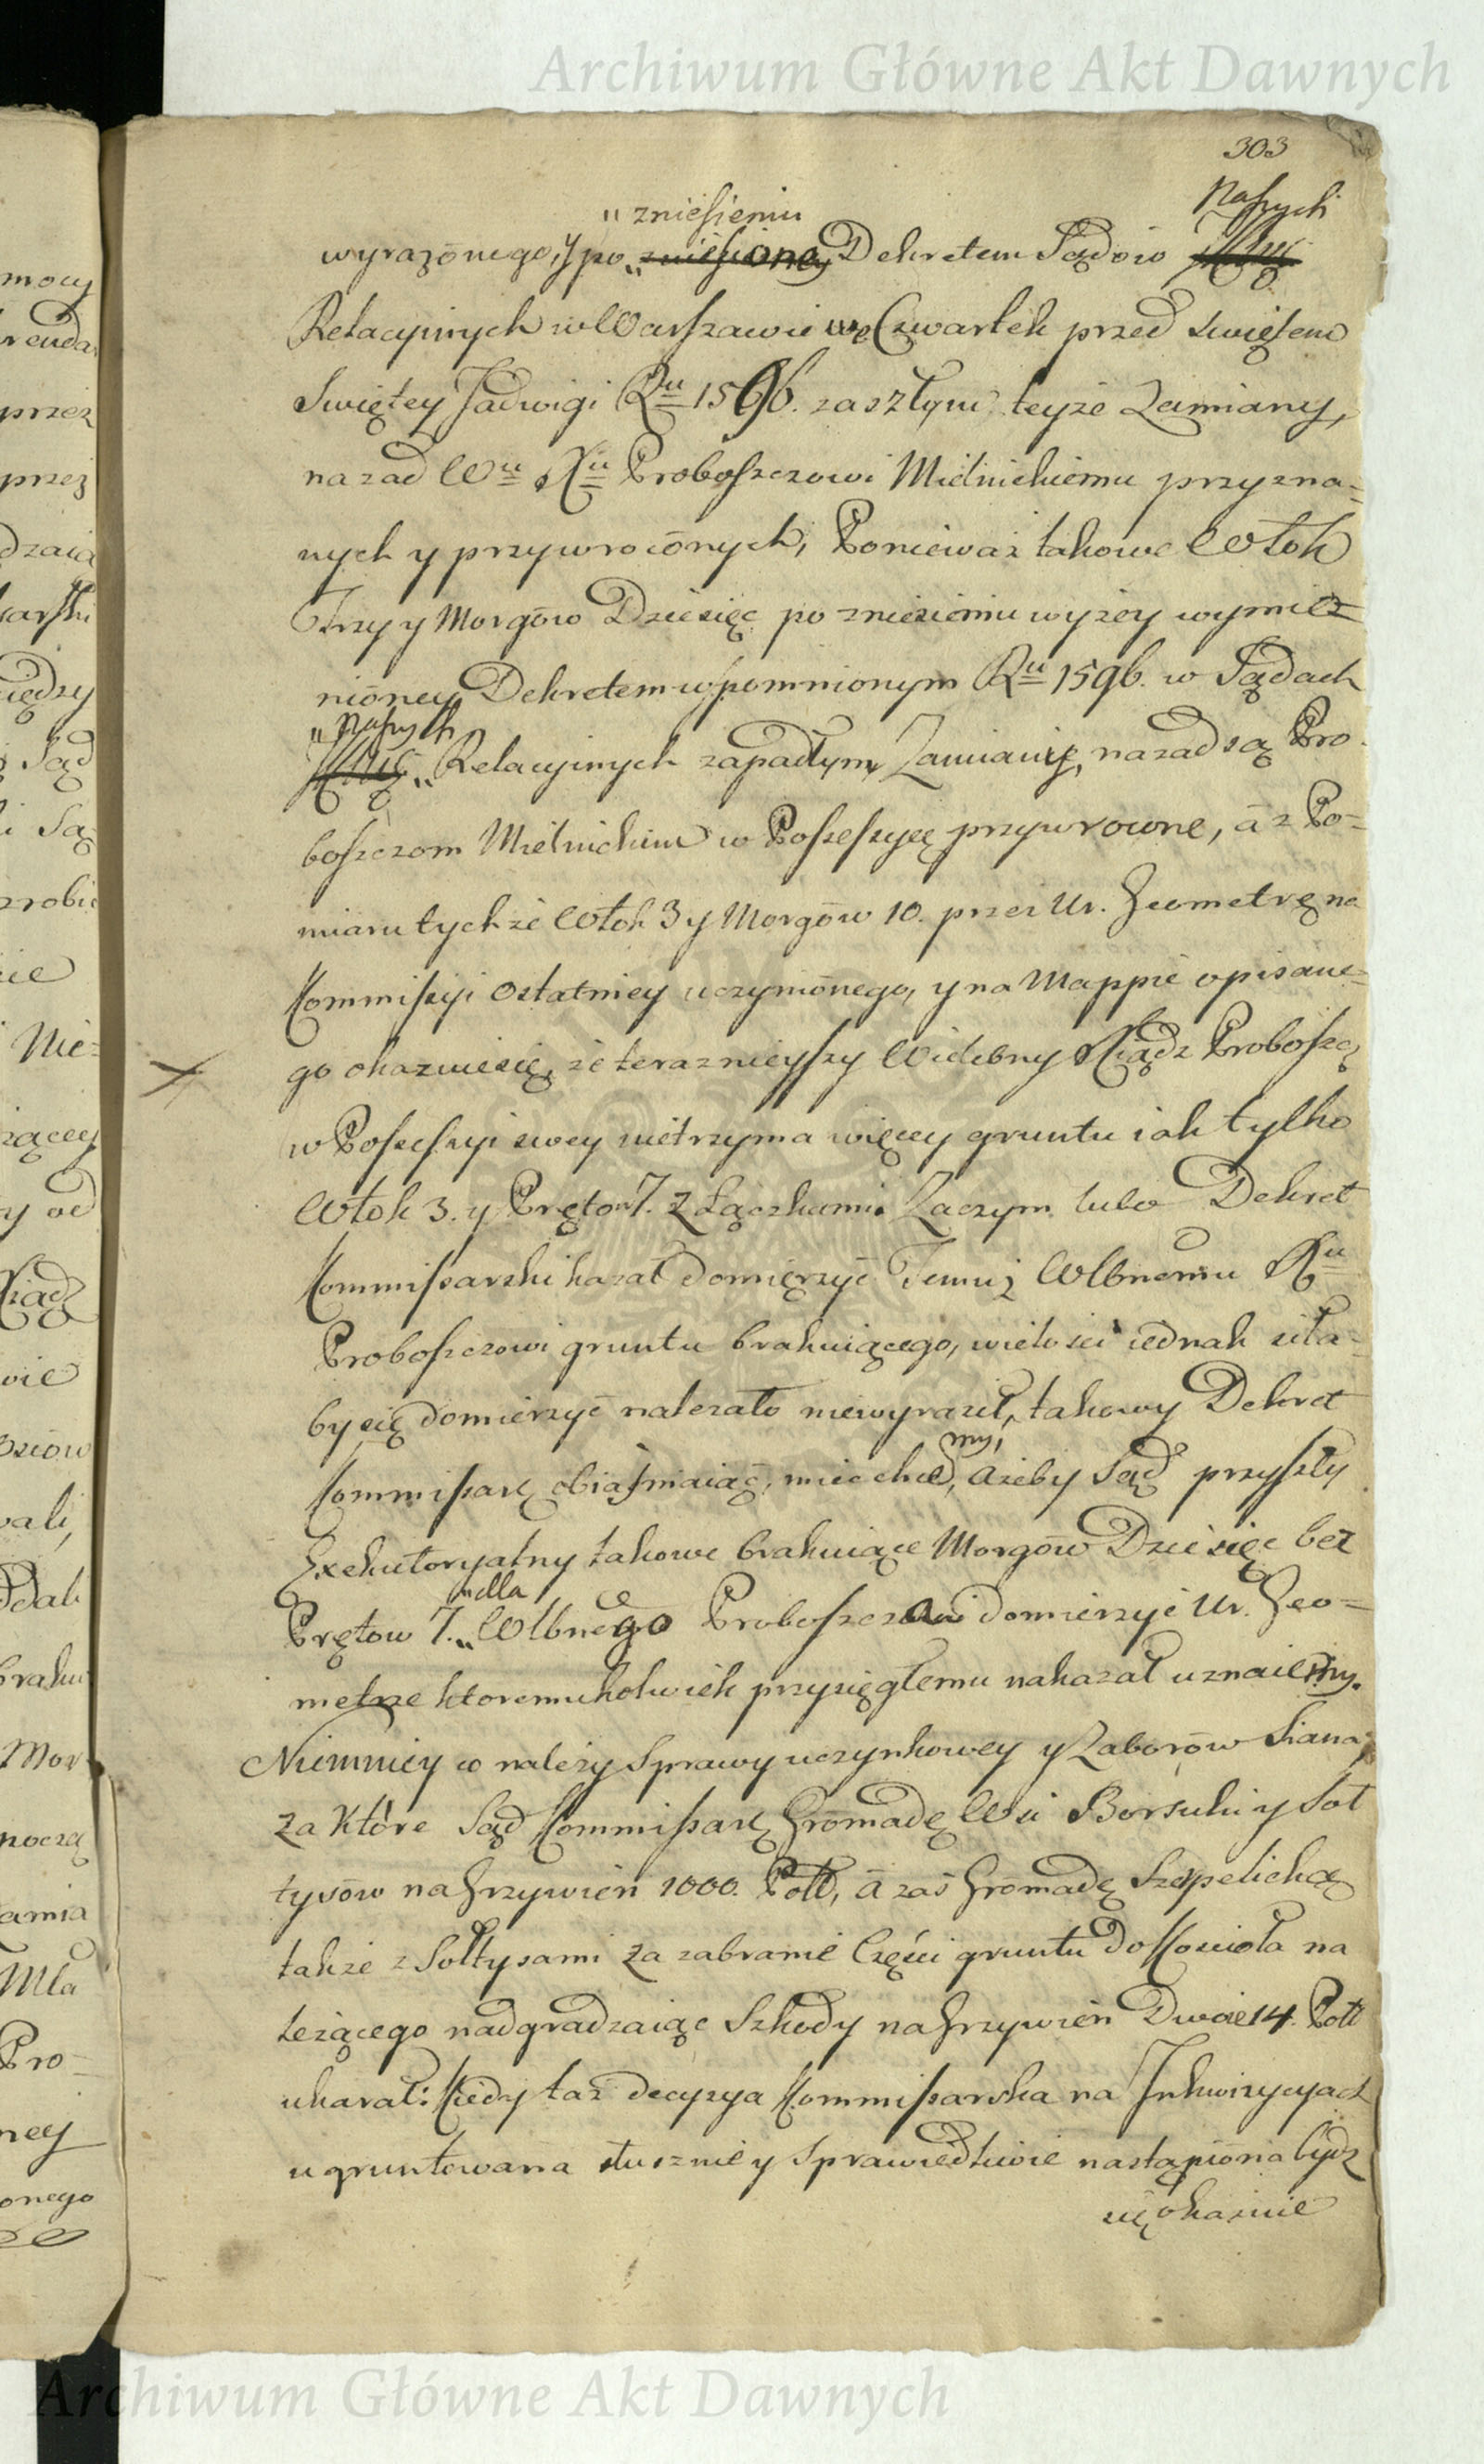 Archiwum Główne Akt Dawnych
303
„ zniesieniu
Naszych
wyrażonego, y po „ zniesioney Dekretem Sądow
Relacyinych w Warszawie we Czwartek przed swiętem
Swiętey Jadwigi Ru 1596. zaszłym teyże Zamiany,
nazad Wu Xu Proboszczowi Mielnickiemu przyzna=
nych y przywroconych, Ponieważ takowe Włok
Trzy y Morgow Dziesięć po zniesieniu wyżey wymie=
nioney Dekretem wspomnionym Ru 1596. w Sądach
„ Naszych
„ Relacyinych zapadłym, Zamiany, nazad są Pro
boszczom Mielnickim w Possessyą przywrocone, á z Po=
miaru tychże Włok 3 y Morgow 10. przez Ur. Geometrę na
Kommissyi Ostatniey uczynionego, y na Mappie opisane=
go okazuie się, że teraznieyszy Wielebny Xiądz Proboszcz
w Possessyi swey nietrzyma więcey gruntu iak tylko
Włok 3. y Prętow 7. z Łączkami. Zaczym lubo Dekret
Kommissarski kazał domierzyć Temuż Wlbnemu Xu
Proboszczowi gruntu brakuiącego, wielości iednak siła=
by się domierzyć należało niewyraził, takowy Dekret
my,
Kommissarz. obiasniaiąc, mieć chce, ażeby Sąd przyszły
Exekutoryalny takowe brakuiące Morgow Dziesięć bez
„ dla
Prętow 7. „ Wlbnego Proboszcza domierzyć Ur. Geo=
metrze ktoremukolwiek przysięgłemu nakazał uznaiemy.
Niemniey co należy Sprawy uczynkowey y Zaborow Siana,
za które Sąd Kommissarz. Gromadę Wsi Borsuki y Soł
tysow na Grzywien 1000. Poll, á zaś Gromadę Szpelichę
także z Sołtysami za zabranie Części gruntu do Kościoła na
leżącego nadgradzaiąc Szkody na Grzywien Dwie 14. Poll
ukarał: Kiedy taż decyzya Kommissarska na Inkwizycyach
ugruntowana słusznie y Sprawiedliwie nastąpiona bydz
się okazuie
Archiwum Główne Akt Dawnych